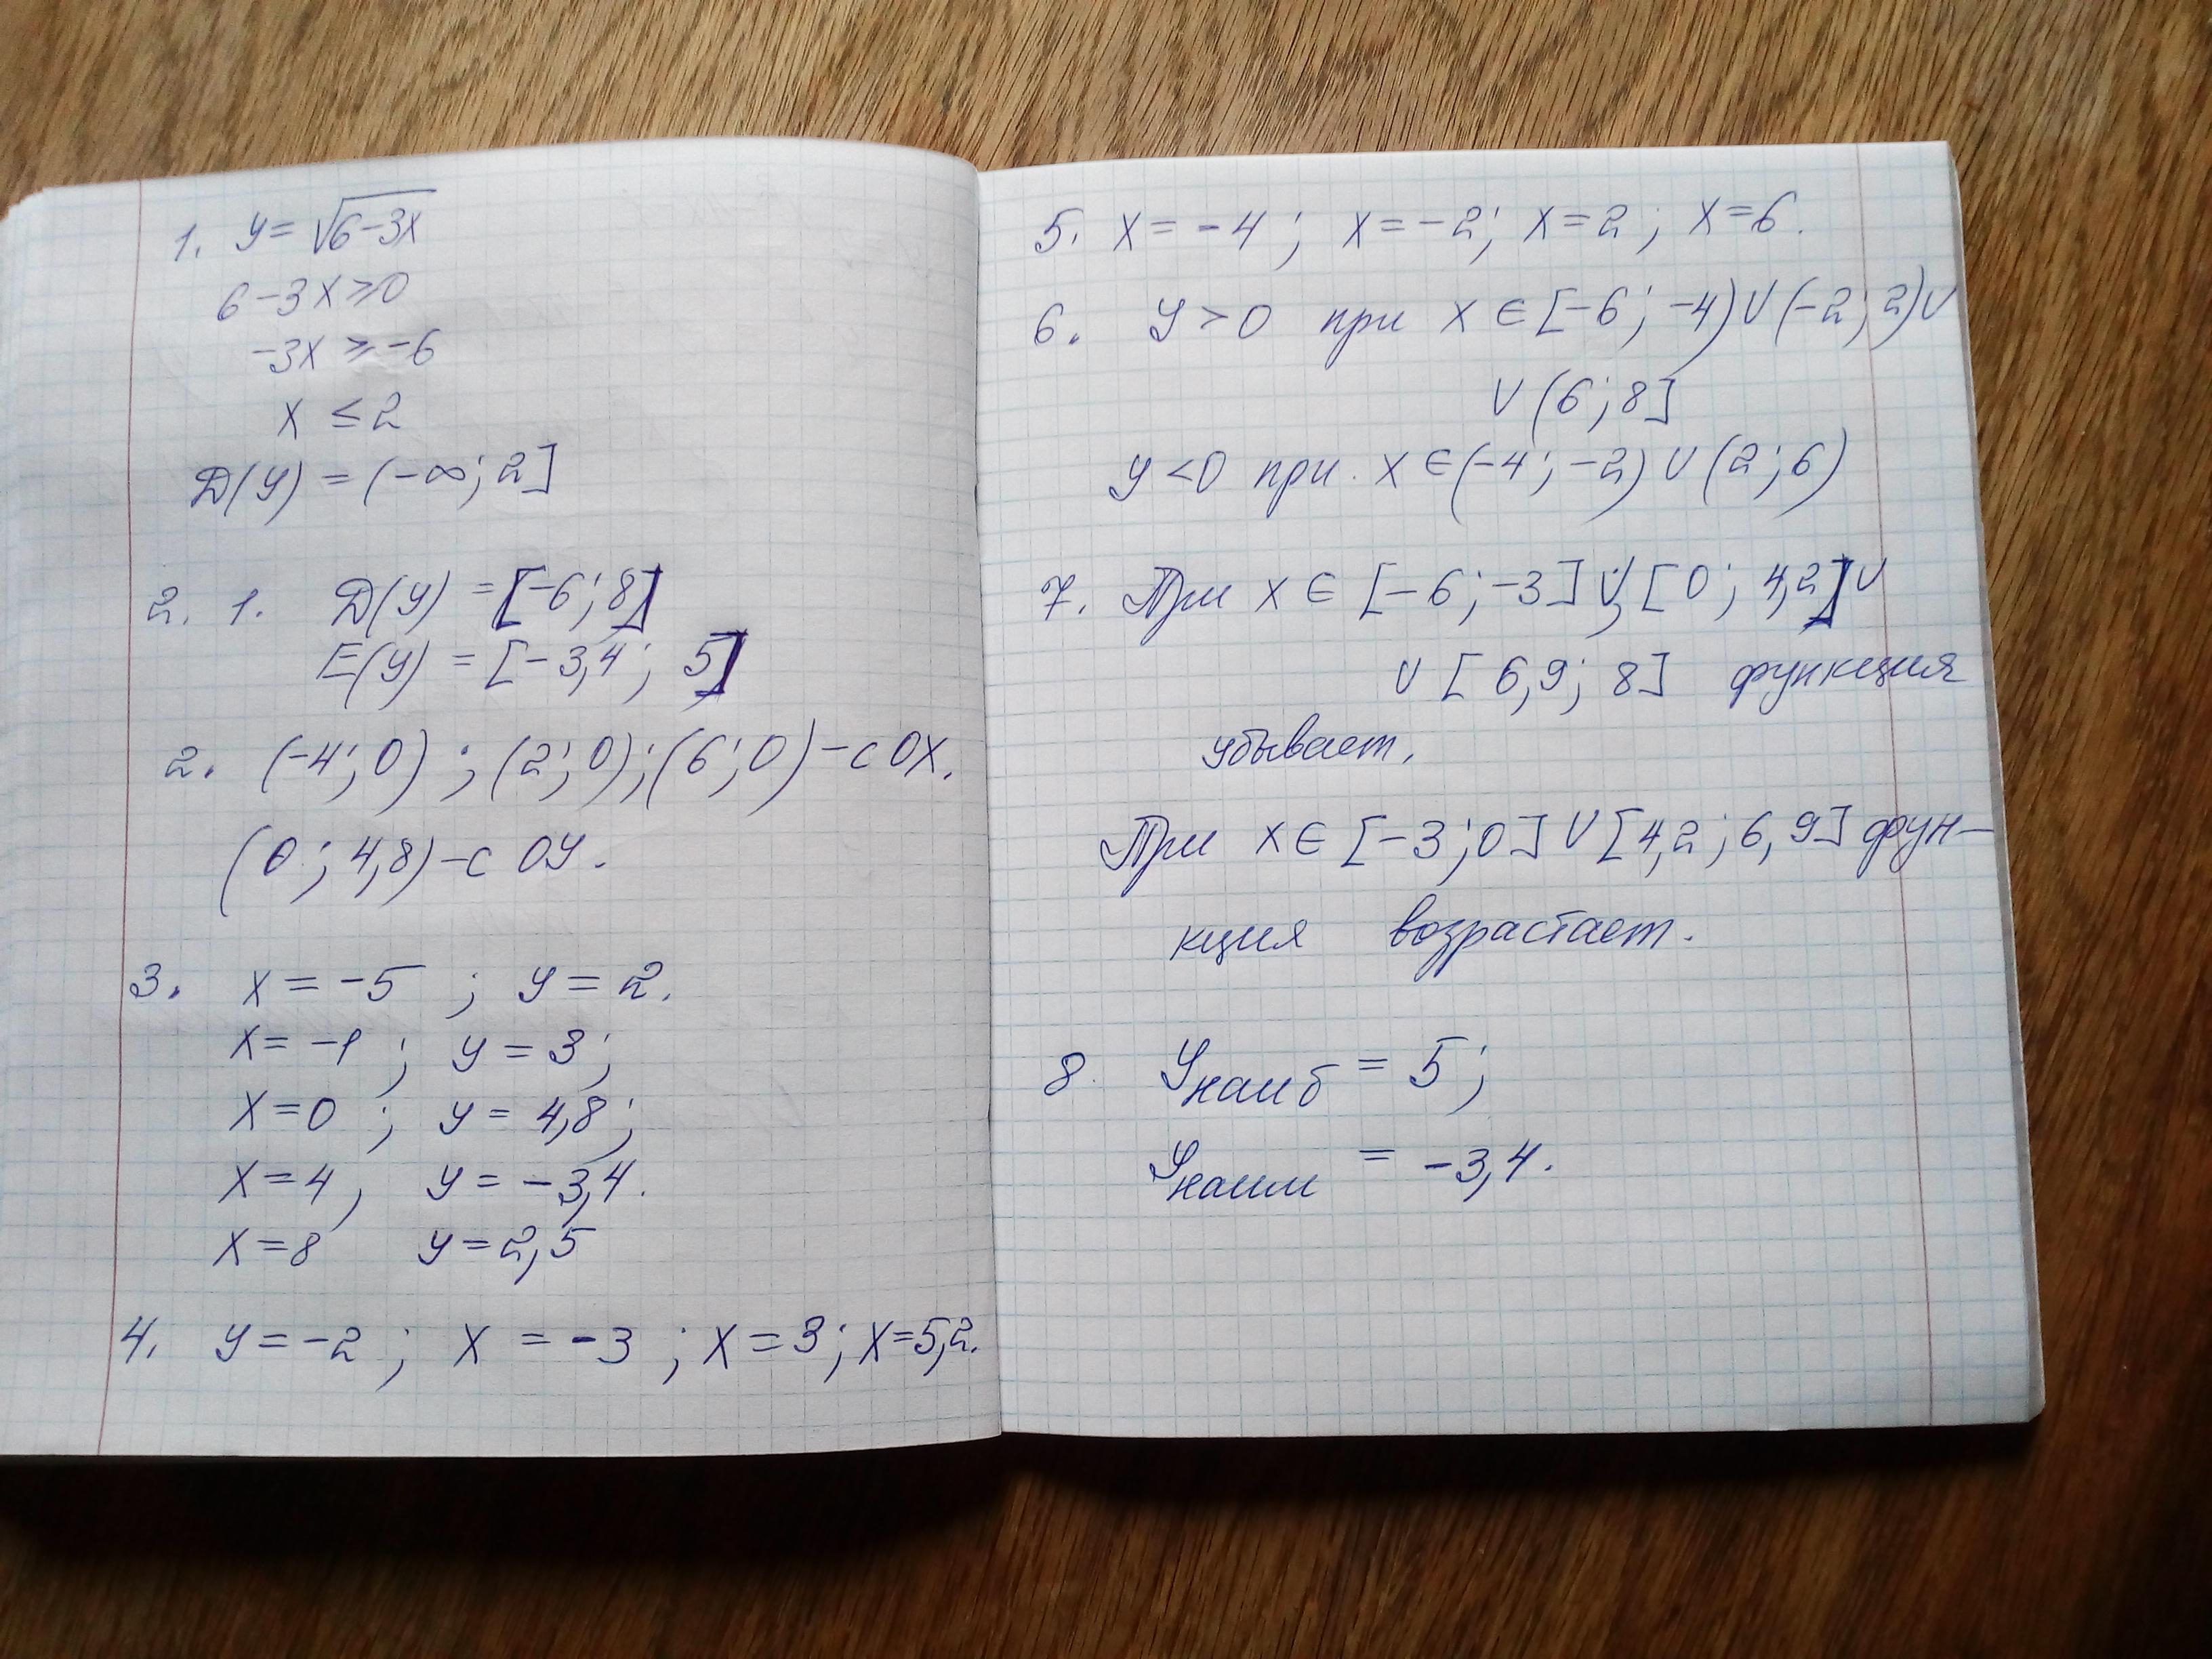 1. y = √6-3x
6-3x ≥ 0
-3x ≥ -6
x ≤ 2
D(y) = (-∞; 2]
2. 1. D(y) = [-6; 8]
E(y) = [-3,4; 5]
2. (-4; 0); (2; 0); (6; 0) - с OX.
(0; 4,8) - с OY.
3. x = -5; y = 2.
x = -1; y = 3;
x = 0; y = 4,8;
x = 4, y = -3,4.
x = 8 y = 2,5
4. y = -2; x = -3; x = 3; x = 5,2.
5. x = -4; x = -2; x = 2; x = 6.
6. y > 0 при x ∈ [-6; -4) ∪ (-2; 2) ∪
∪ (6; 8]
y < 0 при x ∈ (-4; -2) ∪ (2; 6)
7. При x ∈ [-6; -3] ∪ [0; 4,2] ∪
∪ [6,9; 8] функция
убывает.
При x ∈ [-3; 0] ∪ [4,2; 6,9] фун-
кция возрастает.
8. Yнаиб = 5;
Yнаим = -3,4.